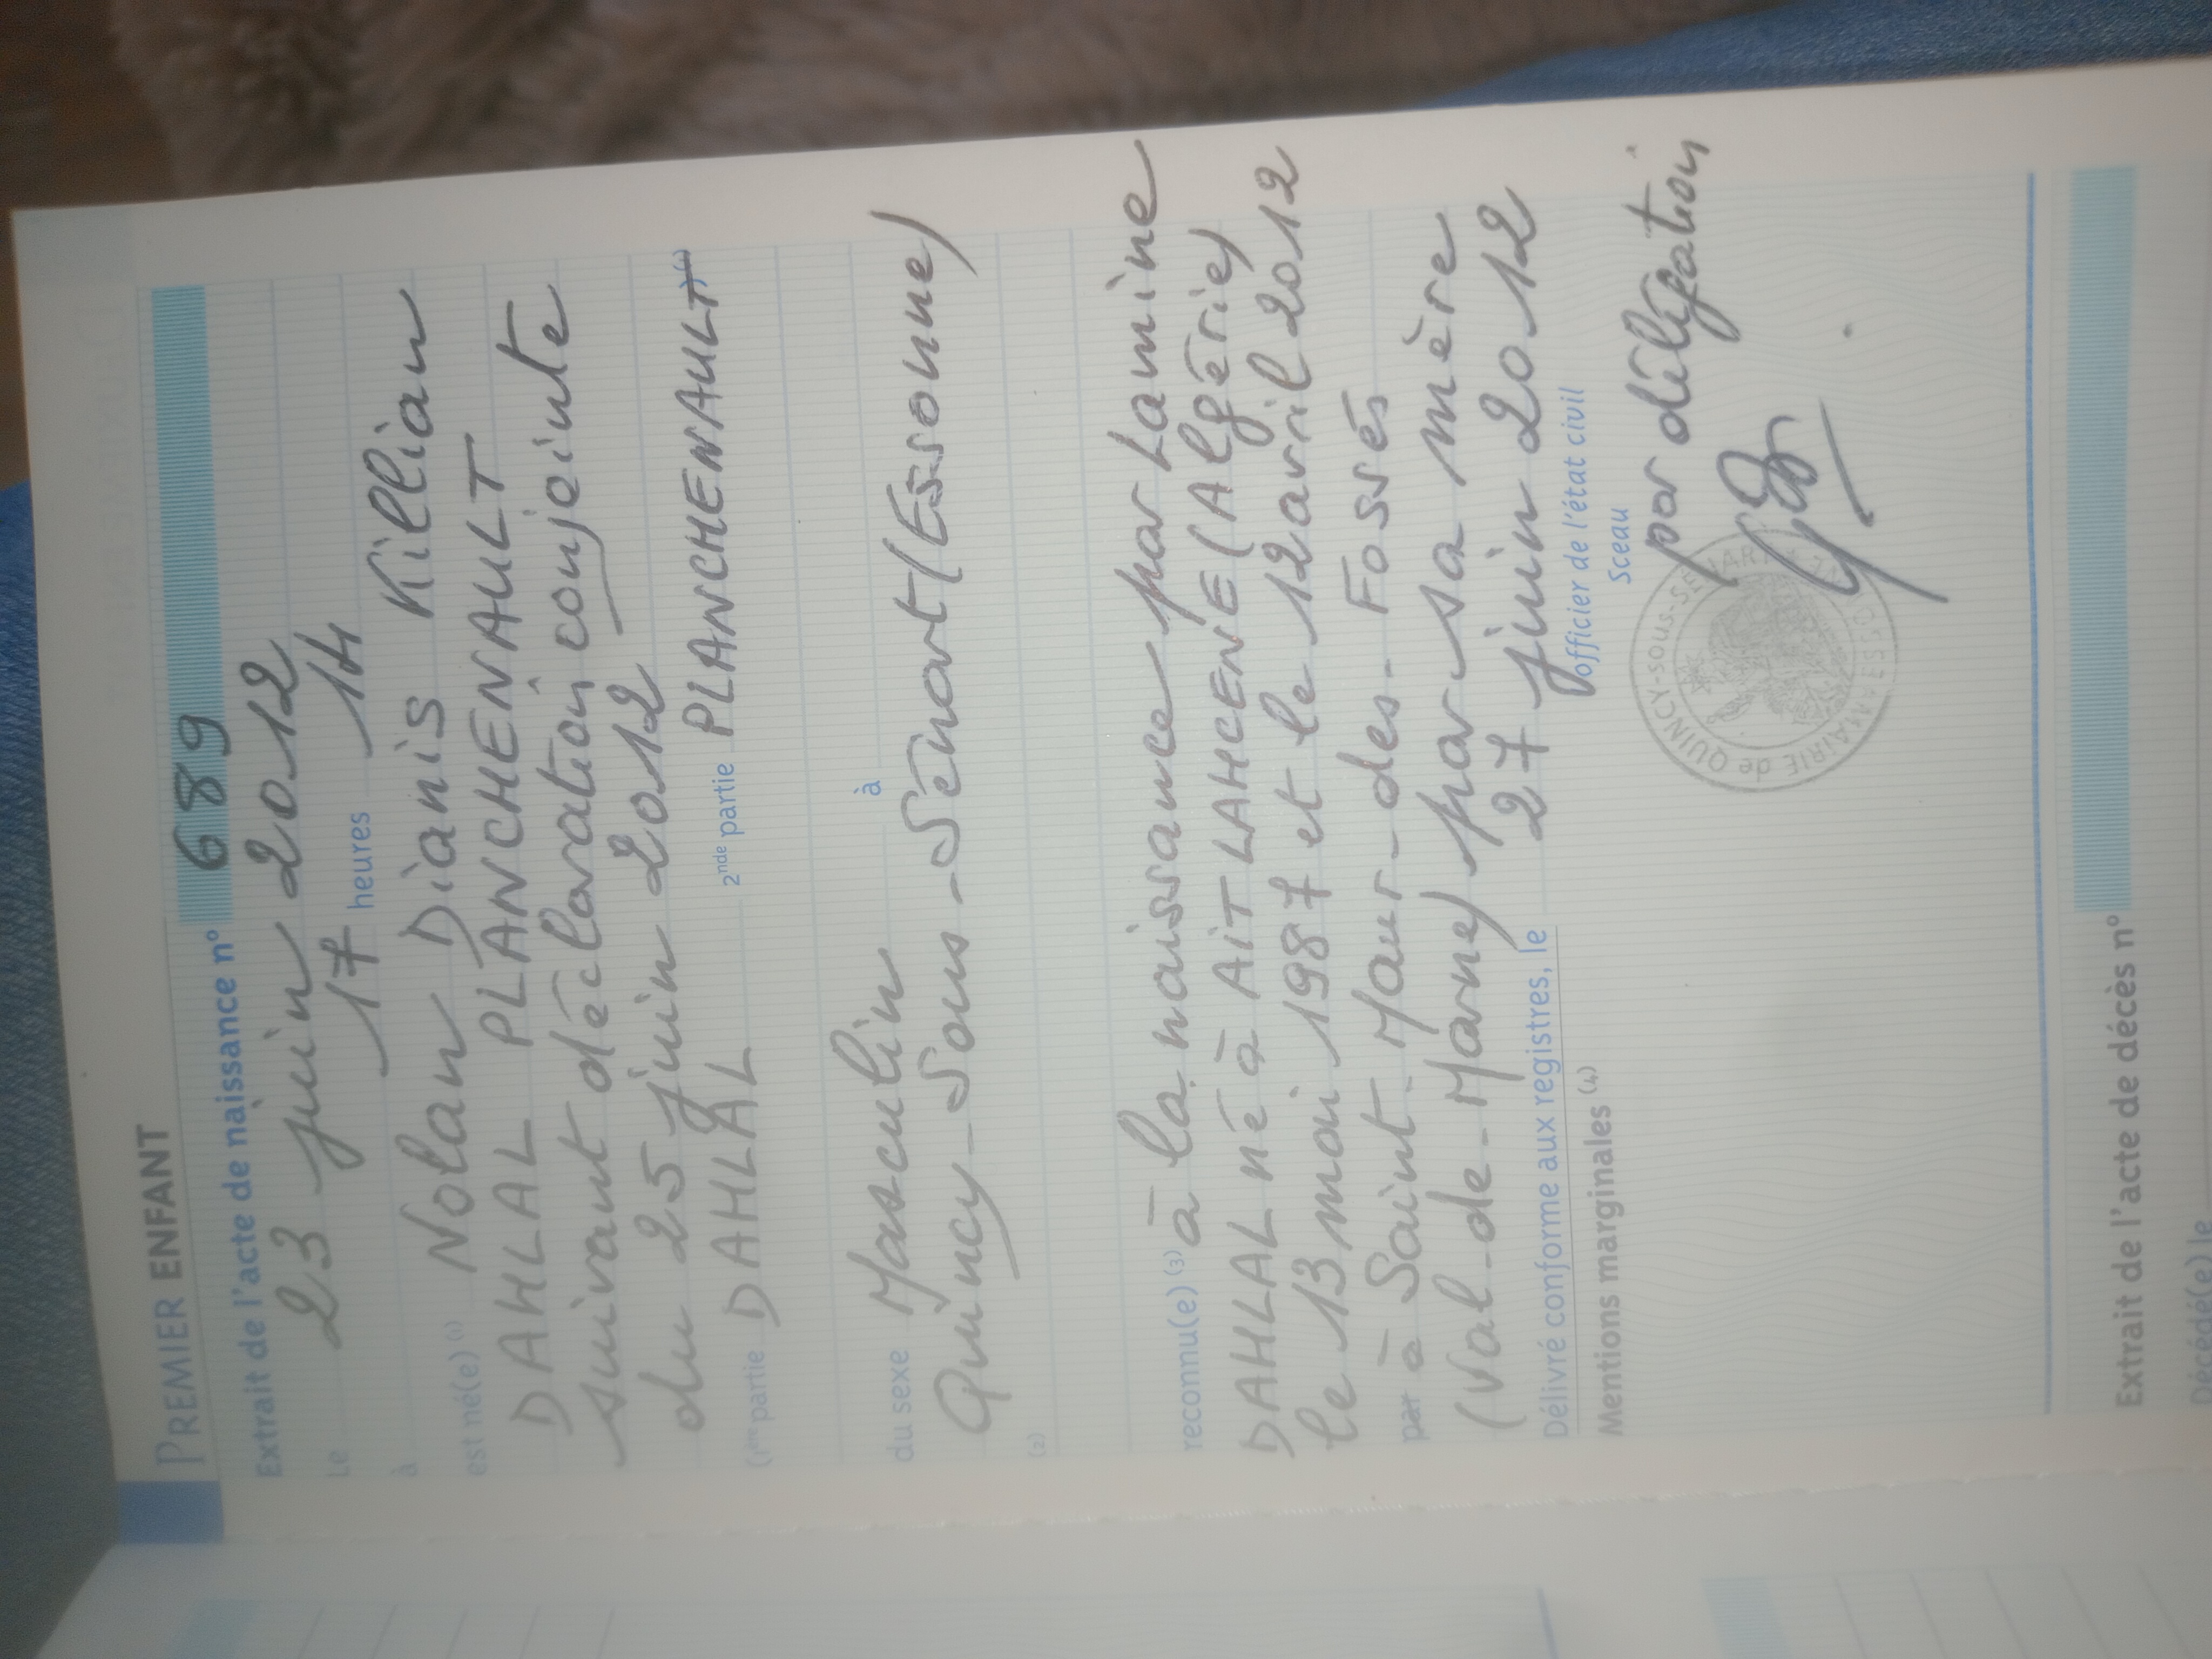 PREMIER ENFANT
Extrait de l'acte de naissance n° 689
Le 23 juin 2012
à 17 heures 14
est né(e) (1) Nolan Dianis Killian
DAHLAL PLANCHENAULT
suivant déclaration conjointe
du 25 juin 2012
(1ère partie DAHLAL 2nde partie PLANCHENAULT)(1)
du sexe Masculin à
Quincy-Sous-Sénart (Essonne)
(2)
reconnu(e) (3) à la naissance par Lamine
DAHLAL né à AiT LAHCENE (Algérie)
le 13 mai 1987 et le 12 avril 2012
par à Saint-Maur-des-Fossés
(Val-de-Marne) par sa mère
Délivré conforme aux registres, le 27 juin 2012
Mentions marginales (4)
l'officier de l'état civil
Sceau
par délégation
MAIRIE de QUINCY-sous-SÉNART
Extrait de l'acte de décès n°
Décédé(e) le